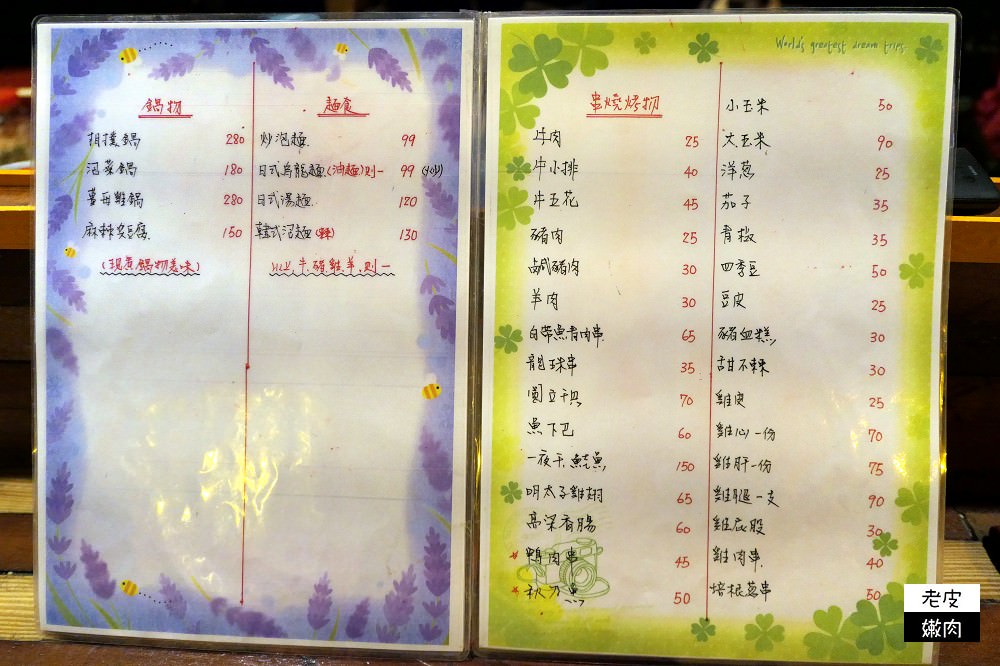 鍋物
相撲鍋 280
泡菜鍋 180
薑母雞鍋 280
麻辣臭豆腐 150
(現煮鍋物美味)
麵食
炒泡麵 99
日式烏龍麵(油麵)則一 99
日式湯麵 120
韓式泡麵(辣) 130
以上牛.豬.雞.羊.則一
World's greatest dream trips
串燒烤物
牛肉 25
牛小排 40
牛五花 45
豬肉 25
鹹豬肉 30
羊肉 30
白帶魚背肉串 65
龍珠串 35
圓立干貝 70
魚下巴 60
一夜干.鯖魚 150
明太子雞翅 65
高梁香腸 60
鴨肉串 45
秋刀魚 50
小玉米 50
大玉米 90
洋蔥 25
茄子 35
青椒 35
四季豆 50
豆皮 25
豬血糕 30
甜不辣 30
雞皮 25
雞心一份 70
雞肝一份 75
雞腿一支 90
雞屁股 30
雞肉串 40
培根蔥串 50
老皮
嫩肉